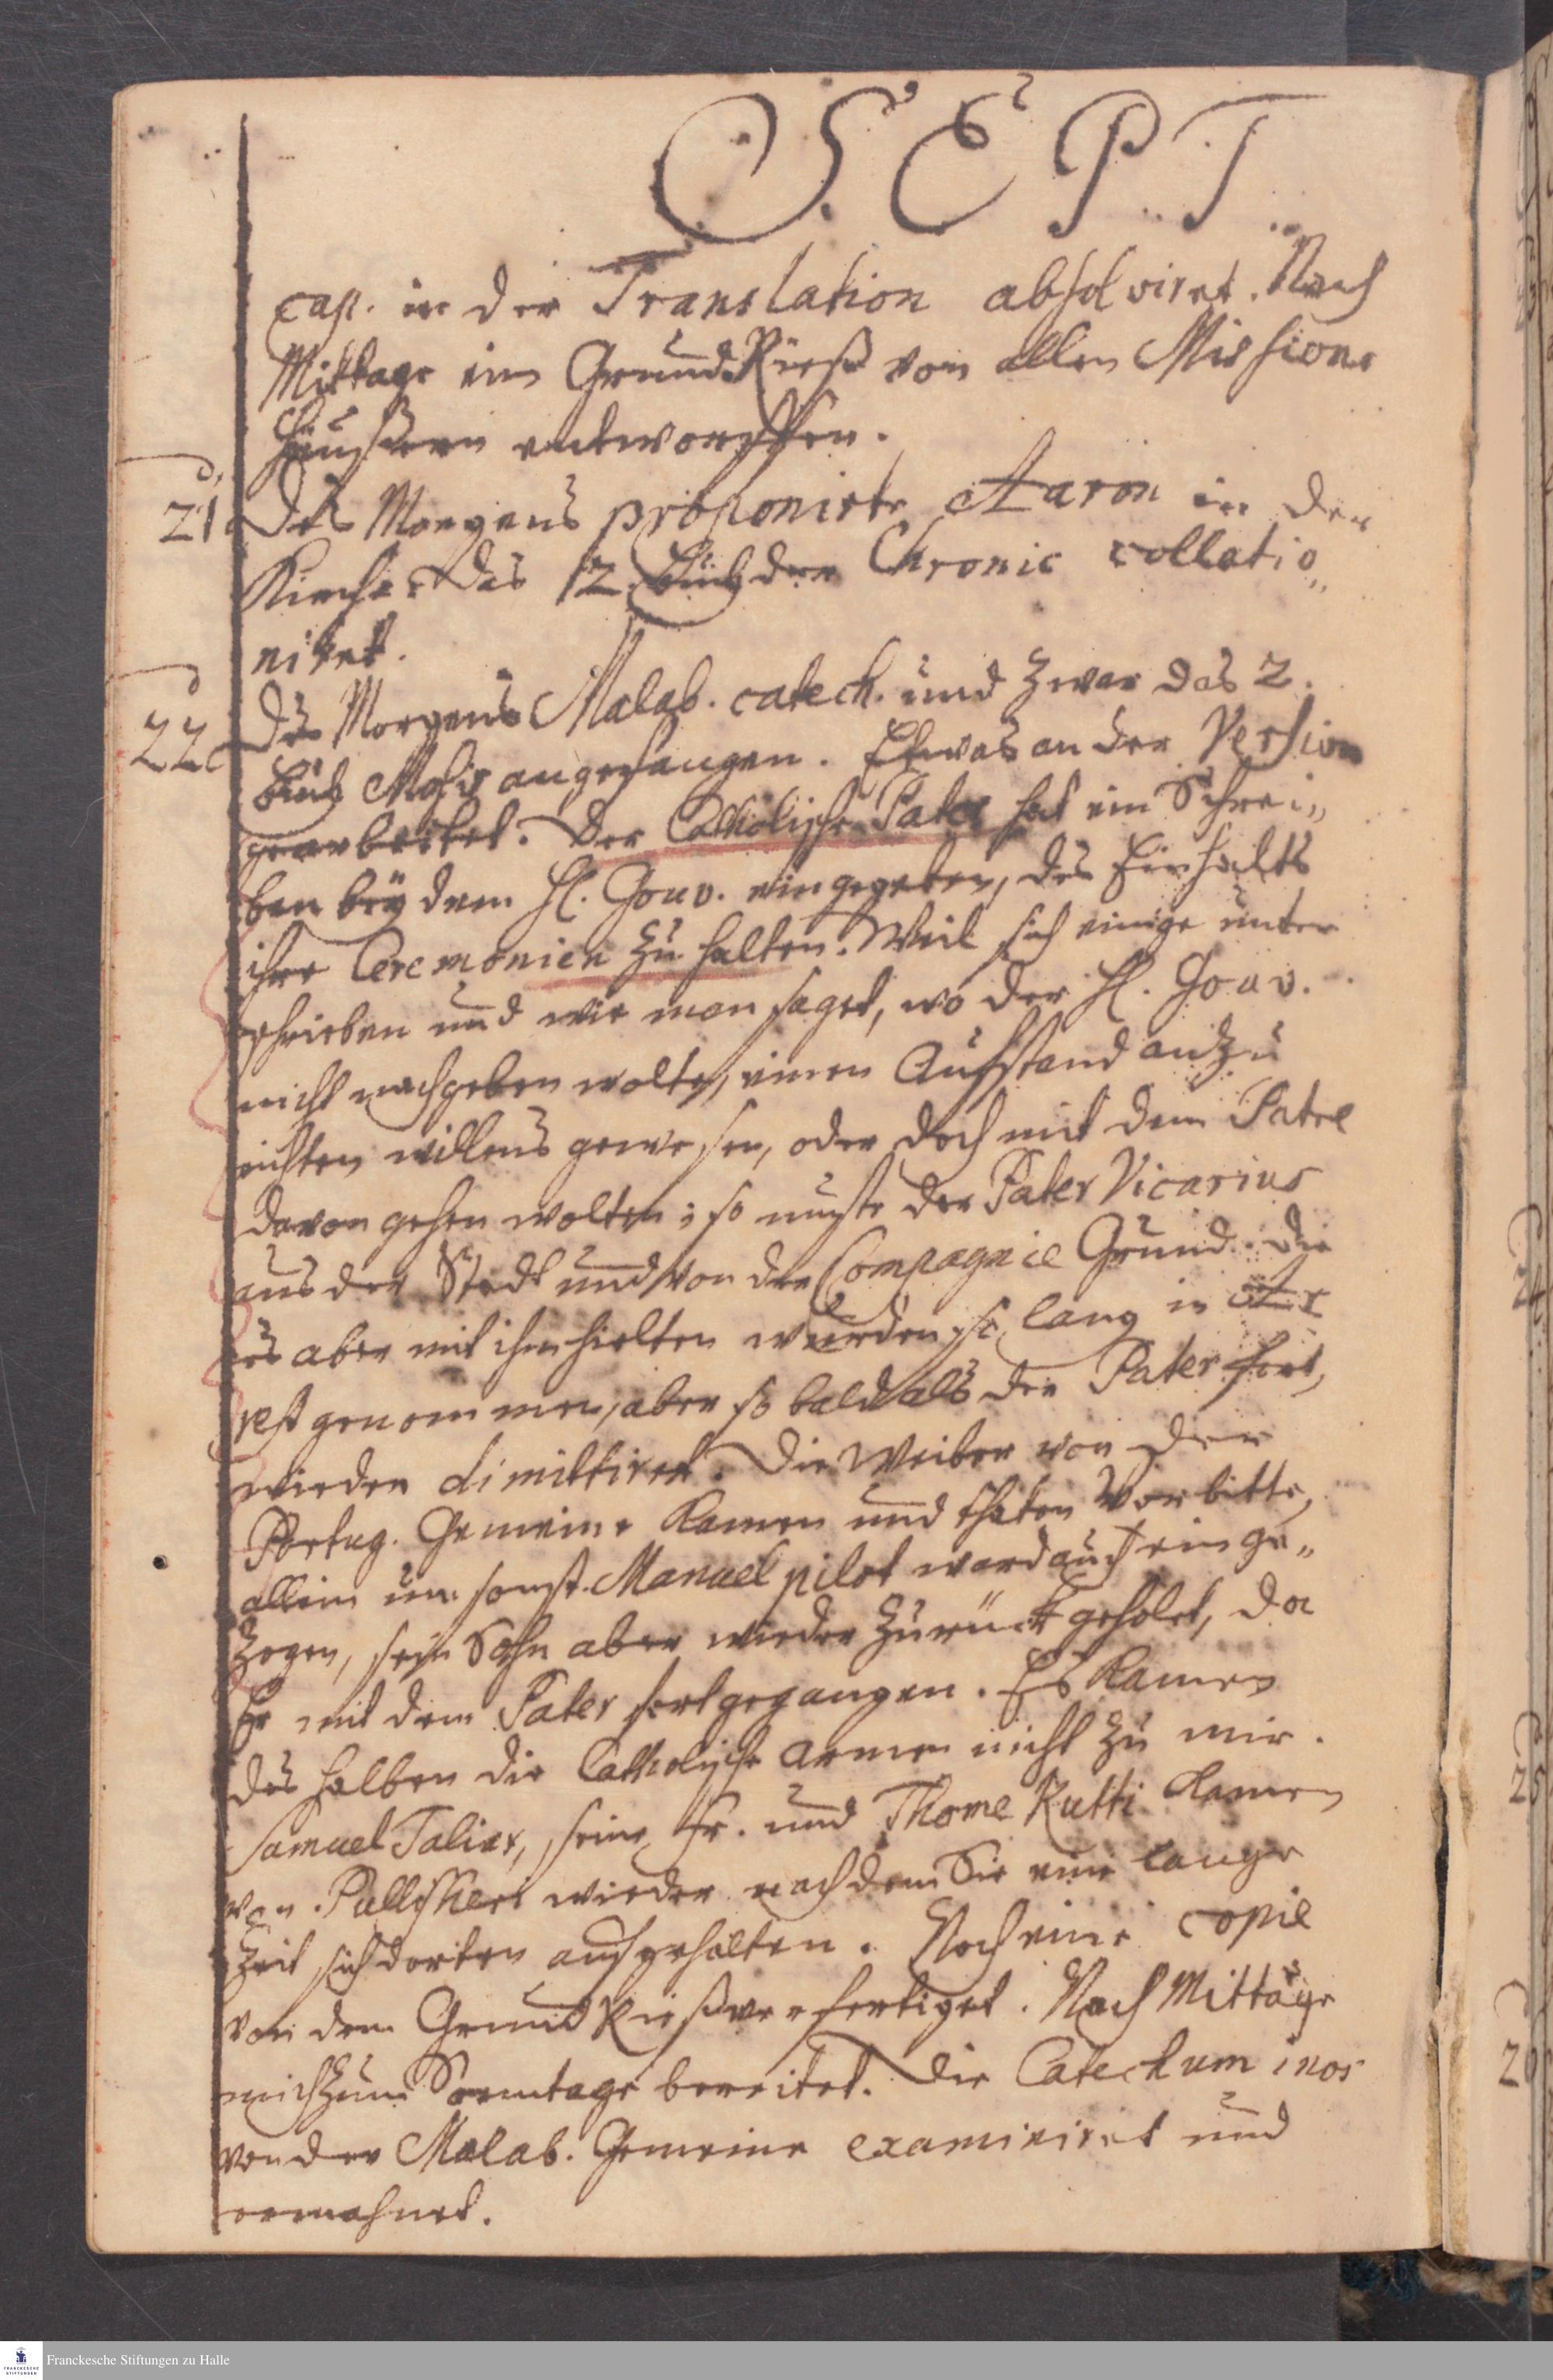 SEPT
cap. in der Translation absolviret. Nach
Mittage ein Grund Rieß von allen Missions
Häußern entworffen.
21 Des Morgens proponirte Aaron in der
Kirche. Das 12. Buch der Chronic collatio„
niret.
22 Des Morgens Malab. catech. und zwar das 2.
Buch Mosis angefangen. Etwas an der Version
gearbeitet. Der Catholische Pater hat ein Schrei„
ben beÿ dem H. Gouv. eingegeben, des Einhalts
ihre Ceremonien zu halten. Weil sich einige unter
schrieben und wie man saget, wo der H. Gouv.
nicht nachgeben wolte, einen Aufstand anzu
richten willens gewesen, oder doch mit dem Patre
davon gehen wolten; so muste der Pater Vicarius
aus der Stadt und von der Compagnie Grund. Die
es aber mit ihm hielten wurden so lang in Ar
rest genommen, aber so bald als der Pater fort,
wieder dimittiret. Die Weiber von der
Portug. Gemeine kamen und thaten Vorbitte,
allein um sonst. Manuel pilot ward auch einge„
zogen, sein Sohn aber wieder zurück geholet, da
Er mit dem Pater fortgegangen. Es kamen
des halben die Catholische armen nicht zu mir.
Samuel Talier, seine Fr. und Thome Kutti kamen
von Pullicheri wieder nach dem Sie eine lange
Zeit sich dorten aufgehalten. Noch eine copie
von dem Grund Rieß verfertiget. Nach Mittage
mich zum Sonntage bereitet. Die Catechumenos
von der Malab. Gemeine examiniret und
ermahnet.
Franckesche Stiftungen zu Halle